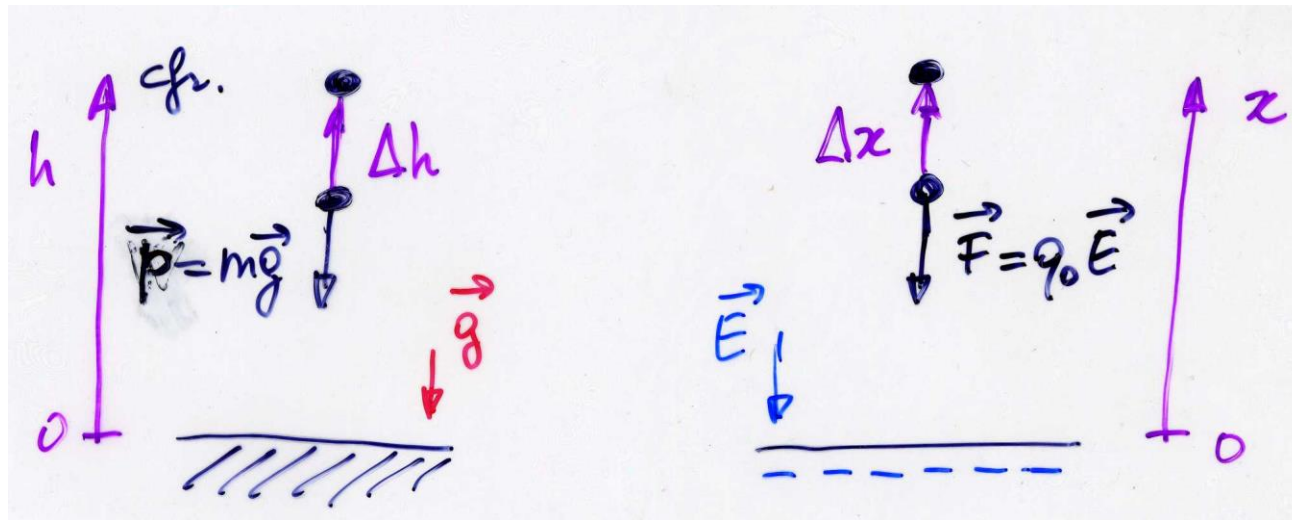 cfr.
h
Δh
p⃗ = mg⃗
g⃗
0
Δx
x
F⃗ = q₀E⃗
E⃗
0